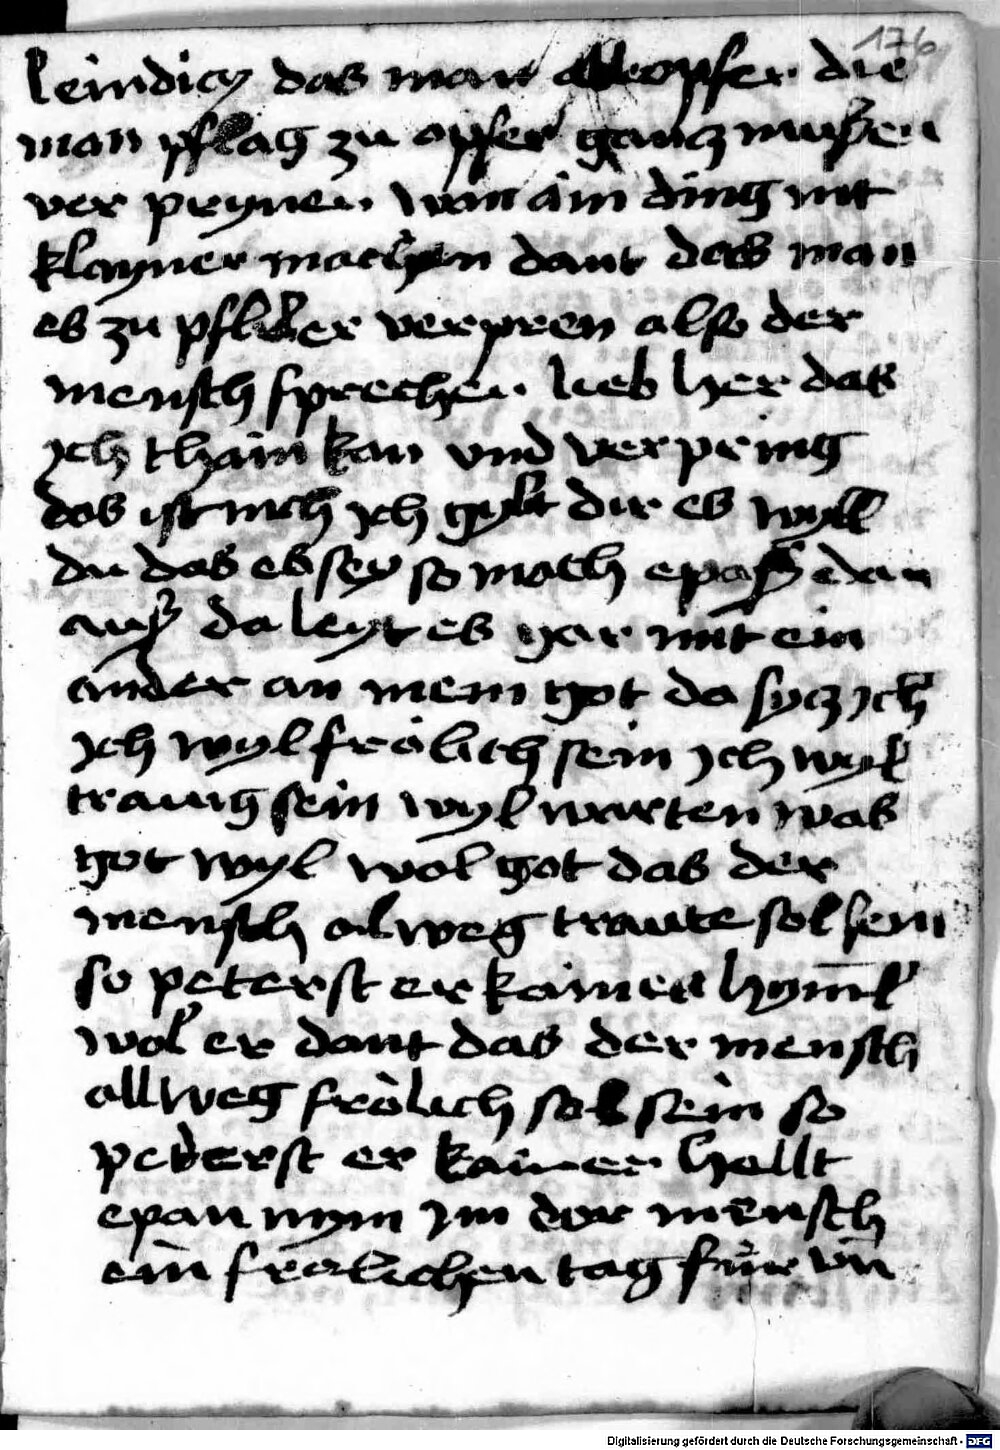 176
leindig das man opfer die
man pflag zu opfer gancz muszen
ver prynen wan ain ding nit
klayner machen dant das man
es zu pflver verpren also der
mensch sprechen lieb her das
ich thain kan vnd verpring
das ist nich ich gybt dir es wyll
du das es sey so mach epas dan
ausz da leyt es gar mit ein
ander an mein got da sycz ich
ich wyl frölich sein ich wyl
traurig sein wyl warten was
got wyl wol got das der
mensch alweg traute sol sein
so peterst er kainen hyml
wol er dant das der mensch
allweg frölich sol sein so
pederst er kainer hellt
epan nym im der mensch
ein frölichen tag für vn
Digitalisierung gefördert durch die Deutsche Forschungsgemeinschaft - DFG